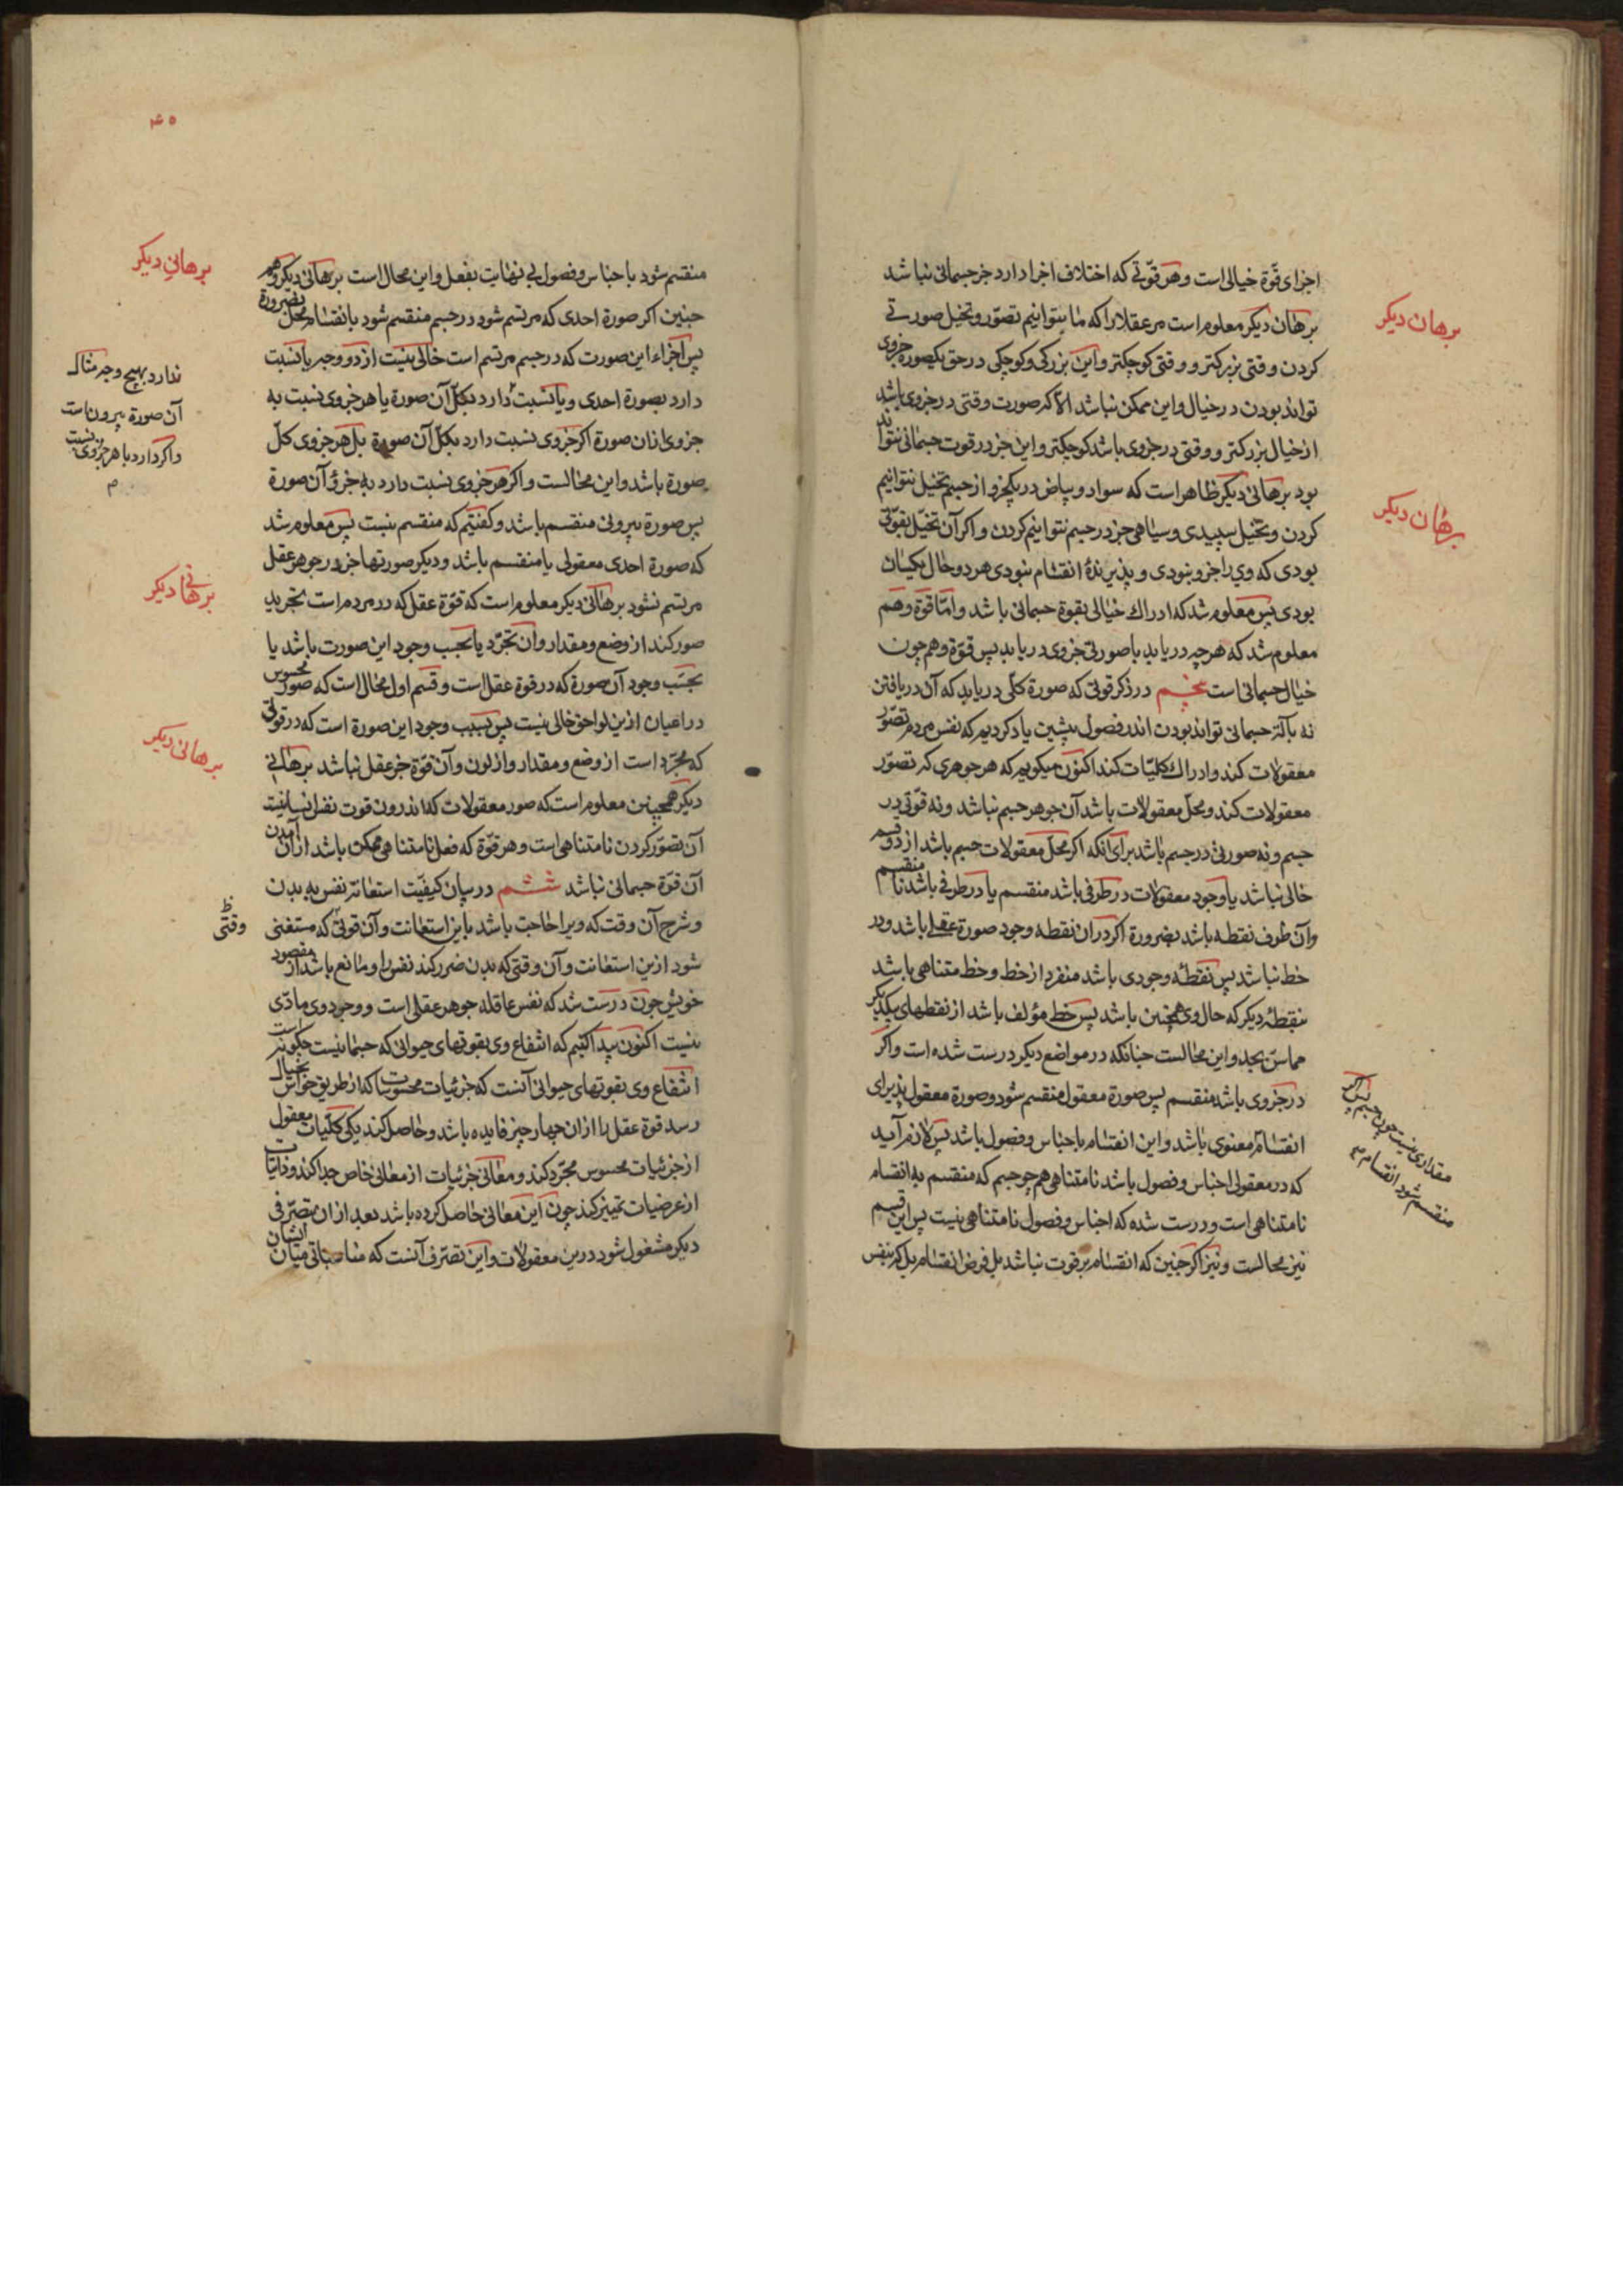 اجزای قوّة خیالی است وهر قوّتی که اختلاف اجزا دارد جز جسمانی نباشد
برهان دیکر معلوم است مر عقلا را که ما بتوانیم تصوّر وتخیل صورتی
کردن وقتی بزرکتر و وقتی کوچکتر واین بزرکی وکوچکی در حق یکصورة جزوی
تواند بودن در خیال واین ممکن نباشد الا که صورت وقتی در جزوی باشد
از خیال بزرکتر و وقتی در جزوی باشد کوچکتر واین جز در قوت جسمانی نتواند
بود برهانی دیکر ظاهر است که سواد وبیاض در یکجزو از جسم تخیل نتوانیم
کردن وتخیل سپیدی وسیاهی جز در جسم نتوانیم کردن واکر آن تخیّل بقوّتی
بودی که وی را جزو نبودی و پذیرندهٔ انقسام نبودی هر دو حال یکسان
بودی پس معلوم شد که ادراک خیالی بقوة جسمانی باشد وامّا قوة وهم
معلوم شد که هرچه دریابد با صورتی جزوی دریابد پس قوّة وهم چون
خیال جسمانی است پنجم در ذکر قوتی که صورة کلّی دریابد که آن دریافتن
نه بآلة جسمانی تواند بودن اندر فصول پیشین یاد کردیم که نفس مردم تصوّر
معقولات کند وادراک کلیّات کند اکنون میکویم که هر جوهری که تصوّر
معقولات کند ومحلّ معقولات باشد آن جوهر جسم نباشد ونه قوّتی در
جسم ونه صورتی در جسم باشد برای انکه اکر محلّ معقولات جسم باشد از دو قسم
خالی نباشد یا وجود معقولات در طرفی باشد منقسم یا در طرفی باشد نا منقسم
وآن طرف نقطه باشد بضرورة اکر در ان نقطه وجود صورة عقلی باشد ودر
خط نباشد پس نقطه وجودی باشد منفرد از خط وخط متناهی باشد
بنقطهٔ دیکر که حال وی همچنین باشد پس خط مؤلف باشد از نقطهای یکدیکر
مماس بحد واین محالست چنانکه در مواضع دیکر درست شده است واکر
در جزوی باشد منقسم پس صورة معقول منقسم شود وصورة معقول پذیرای
انقسام معنوی باشد واین انقسام باجناس وفصول باشد پس لازم آید
که در معقولی اجناس وفصول باشد نامتناهی هم چو جسم که منقسم به انقسام
نامتناهی است ودرست شده که اجناس وفصول نامتناهی نیست پس این قسم
نیز محالست ونیز اکر چنین که انقسام بر قوت نباشد بل فرض انقسام بل که بنفس
برهان دیکر
برهان دیکر
مقداری نیست چون جسم
منقسم شود انقسام
۴۵
منقسم شود باجناس وفصول بی نهایت بفعل واین محال است برهانی دیکر وهم
چنین اکر صورة احدی که مرتسم شود در جسم منقسم شود بانقسام محل بضرورة
پس اجزاء این صورت که در جسم مرتسم است خالی نیست از دو وجه یا نسبت
دارد بصورة احدی ویا نسبت دارد بکلّ آن صورة یا هر جزوی نسبت به
جزوی از ان صورة اکر جزوی نسبت دارد بکلّ آن صورة بل هر جزوی کلّ
صورة باشد واین محالست واکر هر جزوی نسبت دارد به جزؤ آن صورة
پس صورة بیرونی منقسم باشد وکفتیم که منقسم نیست پس معلوم شد
که صورة احدی معقولی یا منقسم باشد ودیکر صورتها جز در جوهر عقل
مرتسم نشود برهانی دیکر معلوم است که قوّة عقل که در مردم است تجرید
صور کند از وضع ومقدار وان تجرّد یا بحسب وجود این صورت باشد یا
بحسب وجود آن صورة که در قوة عقل است وقسم اول محال است که صور محسوس
در اعیان ازین لواحق خالی نیست پس بسبب وجود این صورة است که در قوتی
که مجرّد است از وضع ومقدار واز لون وآن قوّة جز عقل نباشد برهانی
دیکر همچنین معلوم است که صور معقولات که اندرون قوت نفس انسانیت
آن تصوّر کردن نامتناهی است وهر قوّة که فعل نامتناهی ممکن باشد از ان آمدن
آن قوّة جسمانی نباشد ششم در بیان کیفیّت استعانة نفس به بدن
وشرح آن وقت که ویرا حاجت باشد باین استعانت وآن قوتی که مستغنی
شود ازین استعانت وآن وقتی که بدن ضرر کند نفس را ومانع باشد از مقصود
خویش چون درست شد که نفس عاقله جوهر عقلی است ووجود وی مادّی
نیست اکنون پیدا کنیم که انتفاع وی بقوتهای حیوانی که جسمانیست چکونه است
انتفاع وی بقوتهای حیوانی آنست که جزئیات محسوسات که از طریق حواس بخیال
رسد قوة عقل را از ان چهار چیز فایده باشد وحاصل کند یکی کلیات معقول
از جزئیات محسوس مجرّد کند ومعانی جزئیات از معانی خاص جدا کند وذاتیات
از عرضیات تمییز کند چون این معانی حاصل کرده باشد بعد از ان بتصرّفی
دیکر مشغول شود درین معقولات واین تصرّف آنست که مناسباتی میان انشان
برهانی دیکر
ندارد بهیچ وجه مثال
آن صورة بیرون است
واکر دارد با هر جزوی نسبت
م
برهانی دیکر
برهانی دیکر
وقتی